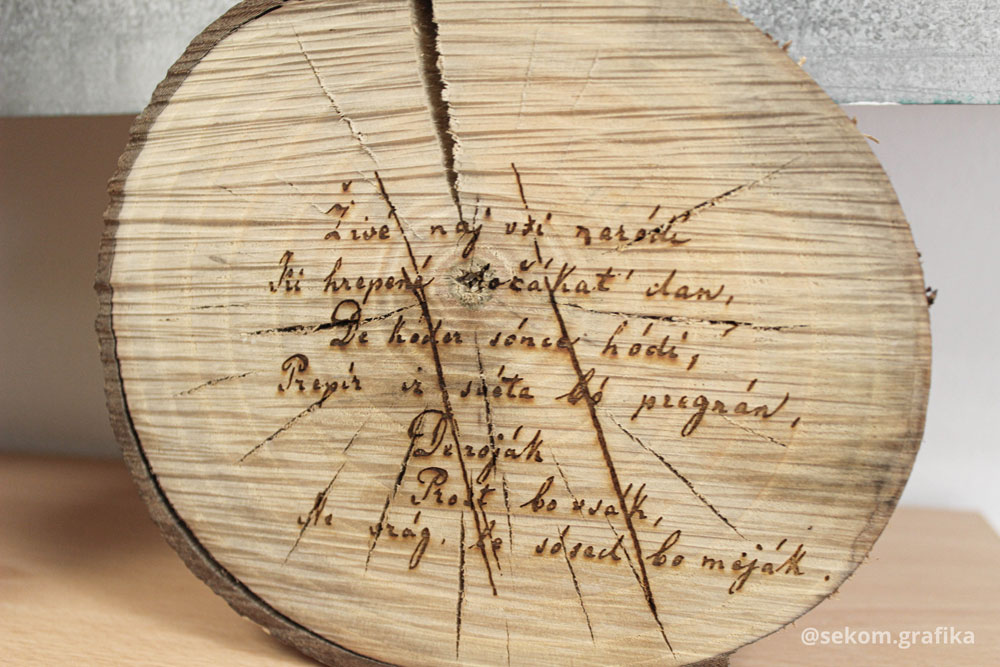 Živé naj vsí naródi
Ki hrepené dočákat' dan,
De koder sónce hódi,
Prepír iz svéta bó pregnán,
De roják
Prost bo vsák,
Ne vrág, le sósed bo meják.
@sekom.grafika